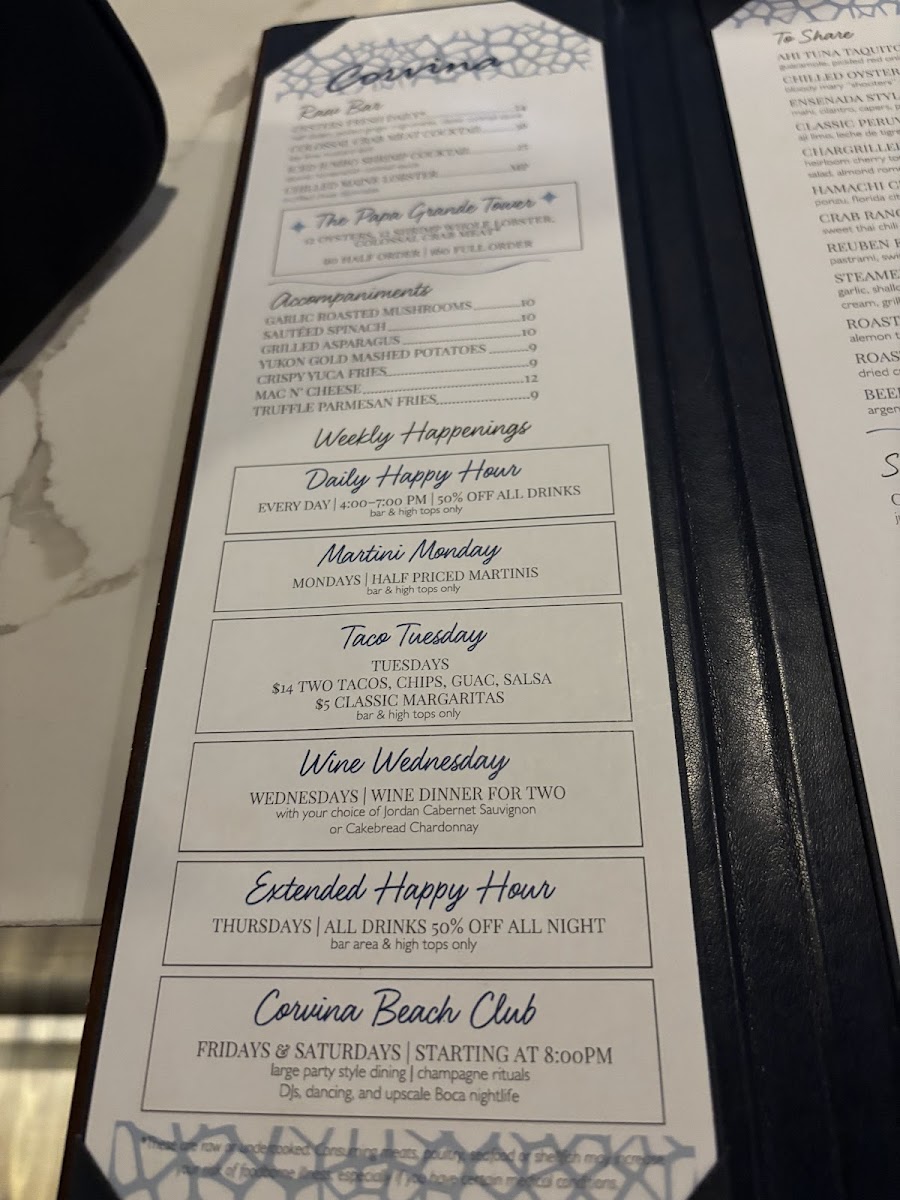 Corvina
Raw Bar
COLOSSAL CRAB MEAT COCKTAIL
ICED JUMBO SHRIMP COCKTAIL
CHILLED MAINE LOBSTER MP
The Papa Grande Tower
12 OYSTERS, 12 SHRIMP WHOLE LOBSTER,
COLOSSAL CRAB MEAT*
HALF ORDER | FULL ORDER
Accompaniments
GARLIC ROASTED MUSHROOMS 10
SAUTÉED SPINACH 10
GRILLED ASPARAGUS 10
YUKON GOLD MASHED POTATOES 9
CRISPY YUCA FRIES 9
MAC N' CHEESE 12
TRUFFLE PARMESAN FRIES 9
Weekly Happenings
Daily Happy Hour
EVERY DAY | 4:00–7:00 PM | 50% OFF ALL DRINKS
bar & high tops only
Martini Monday
MONDAYS | HALF PRICED MARTINIS
bar & high tops only
Taco Tuesday
TUESDAYS
$14 TWO TACOS, CHIPS, GUAC, SALSA
$5 CLASSIC MARGARITAS
bar & high tops only
Wine Wednesday
WEDNESDAYS | WINE DINNER FOR TWO
with your choice of Jordan Cabernet Sauvignon
or Cakebread Chardonnay
Extended Happy Hour
THURSDAYS | ALL DRINKS 50% OFF ALL NIGHT
bar area & high tops only
Corvina Beach Club
FRIDAYS & SATURDAYS | STARTING AT 8:00PM
large party style dining | champagne rituals
DJs, dancing, and upscale Boca nightlife
*These are raw or undercooked. Consuming meats, poultry, seafood or shellfish may increase
your risk of foodborne illness, especially if you have certain medical conditions.
To Share
AHI TUNA TAQUITO
guacamole, pickled red oni
CHILLED OYSTER
bloody mary "shooters"
ENSENADA STYL
mahi, cilantro, capers, p
CLASSIC PERUV
aji limo, leche de tigre
CHARGRILLE
heirloom cherry to
salad, almond rom
HAMACHI C
ponzu, florida cit
CRAB RANG
sweet thai chili
REUBEN
pastrami, swi
STEAME
garlic, shallo
cream, gril
ROAST
alemon t
ROAS
dried c
BEE
argen
S